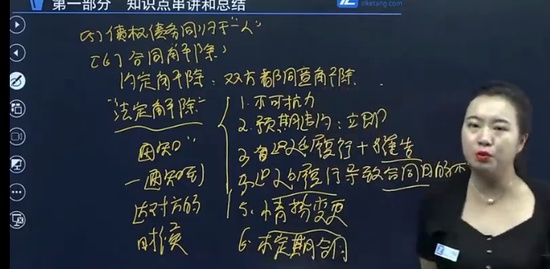 第一部分 知识点串讲和总结
zlketang.com
(5) 债权债务同归于一人
(6) 合同解除
约定解除：双方都同意解除
"法定解除"
1. 不可抗力
2. 预期违约：立即
3. 迟延履行＋催告
4. 迟延履行导致合同目的不
5. 情势变更
6. 不定期合同
通知
通知到
达对方的
时候